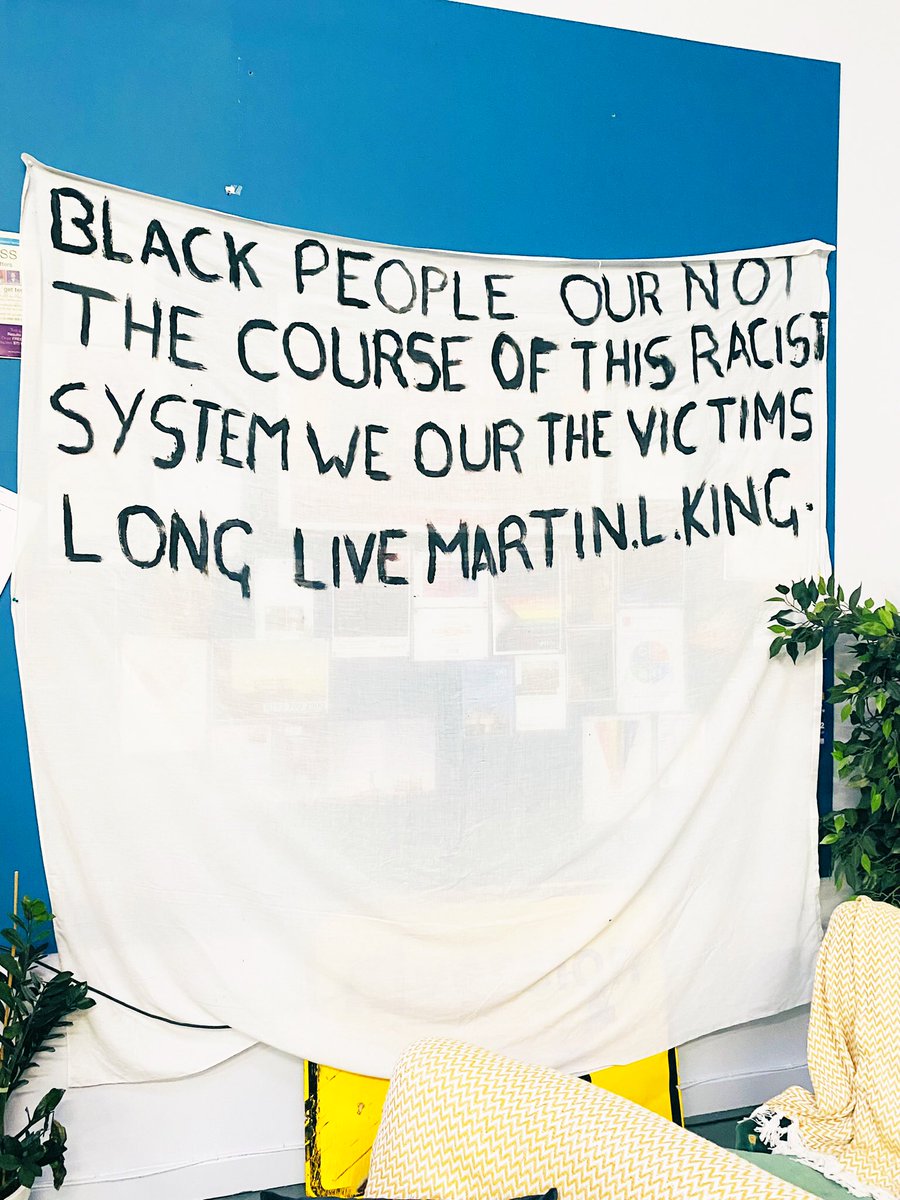 BLACK PEOPLE OUR NOT
THE COURSE OF THIS RACIST
SYSTEM WE OUR THE VICTIMS
LONG LIVE MARTIN.L.KING.